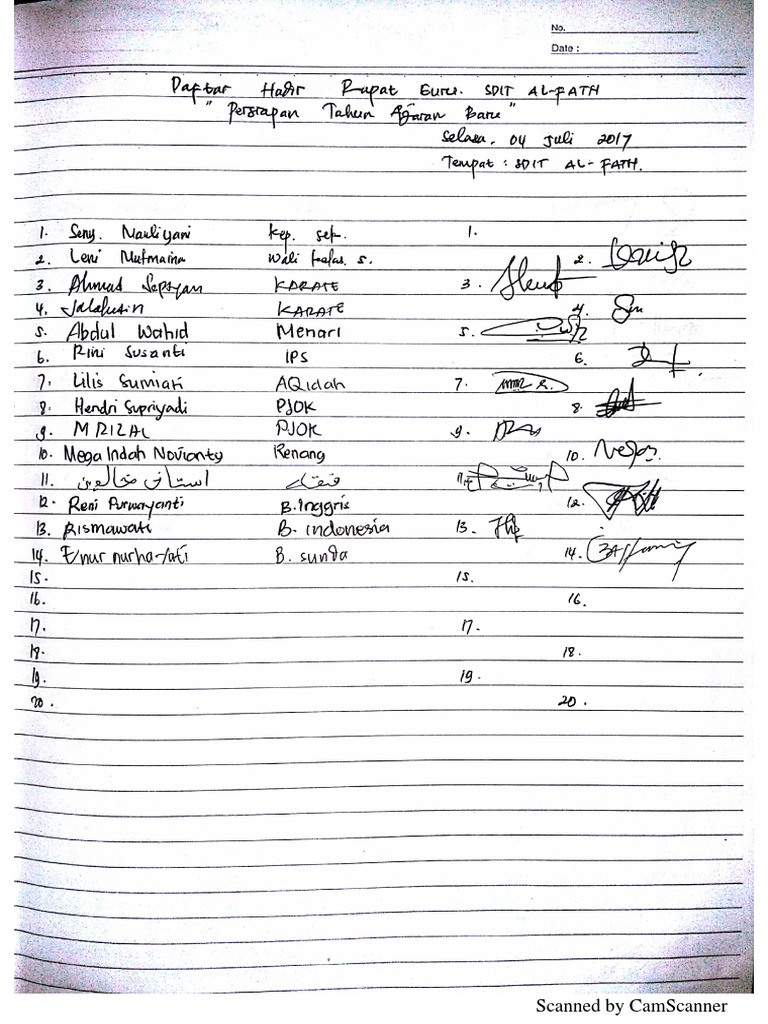 No.
Date :
Daftar Hadir Rapat Guru. SDIT AL-FATH
"Persiapan Tahun Ajaran Baru"
Selasa, 04 Juli 2017
Tempat : SDIT AL-FATH.
1. Seny. Mauliyani Kep. Sek. 1.
2. Leni Mutmaina Wali Kelas. 5. 2.
3. Ahmad Sepsyan KARATE 3.
4. Jalalusin KARATE 4.
5. Abdul Wahid Menari 5.
6. Rini Susanti IPS 6.
7. Lilis Sumiati AQidah 7.
8. Hendri Supriyadi PJOK 8.
9. M RIZAL PJOK 9.
10. Mega Indah Novianty Renang 10.
11. 11.
12. Reni Purwayanti B.Inggris 12.
13. Rismawati B. indonesia 13.
14. Enur nurhayati B. sunda 14.
15. 15.
16. 16.
17. 17.
18. 18.
19. 19.
20. 20.
Scanned by CamScanner